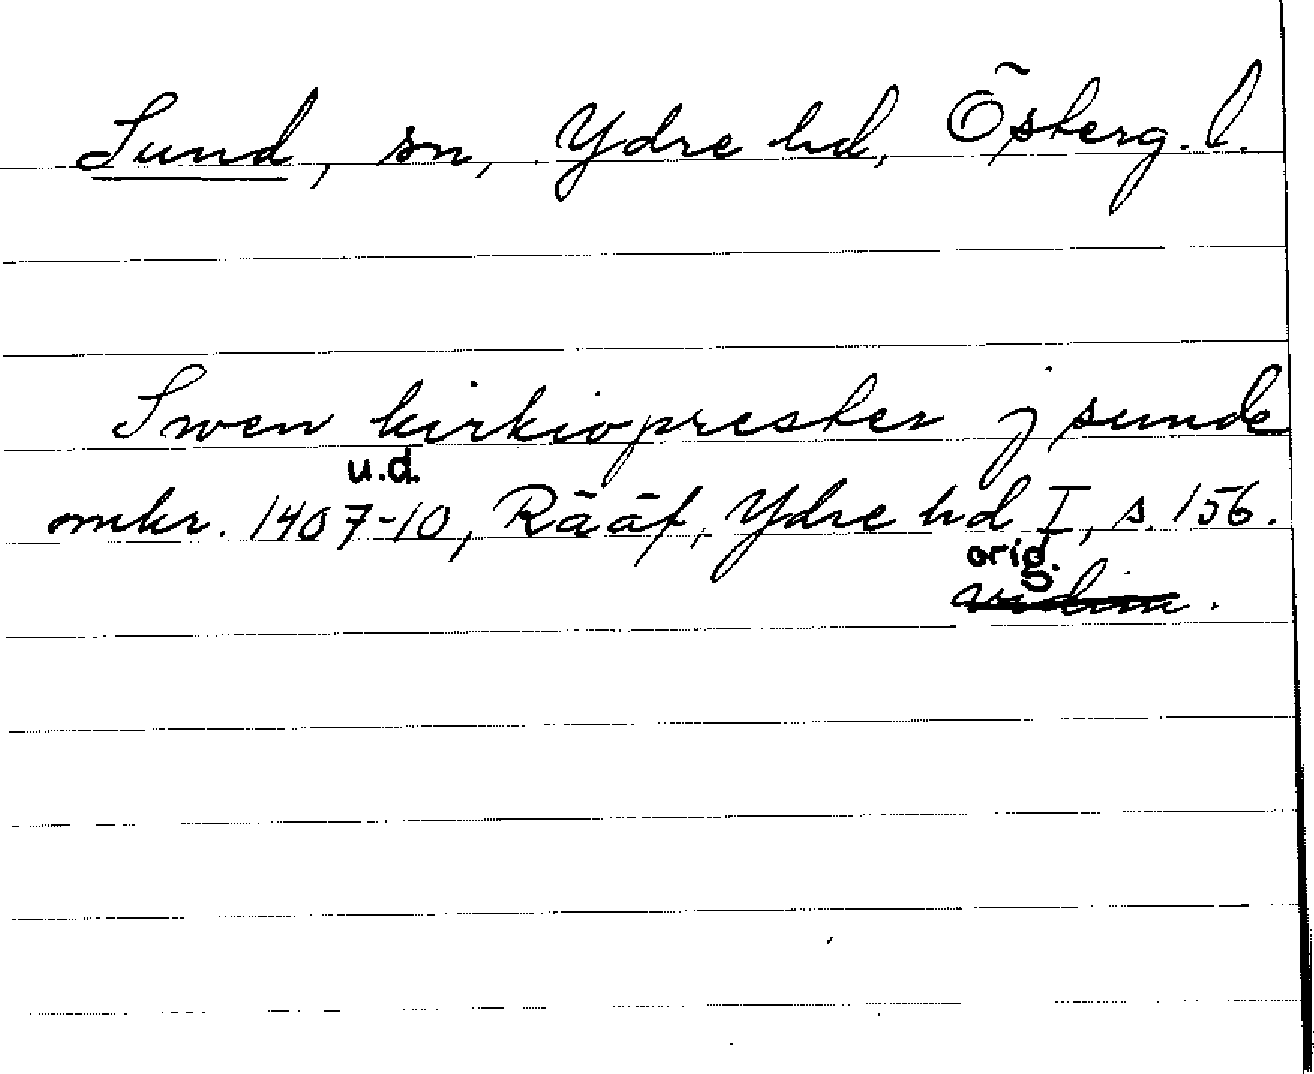 Sund, sn, Ydre hd, Östерg. l.
Swen kirkioprester j sunde
u.d.
omkr. 1407-10, Rääf, Ydre hd I, s. 156.
orig.
vidim.